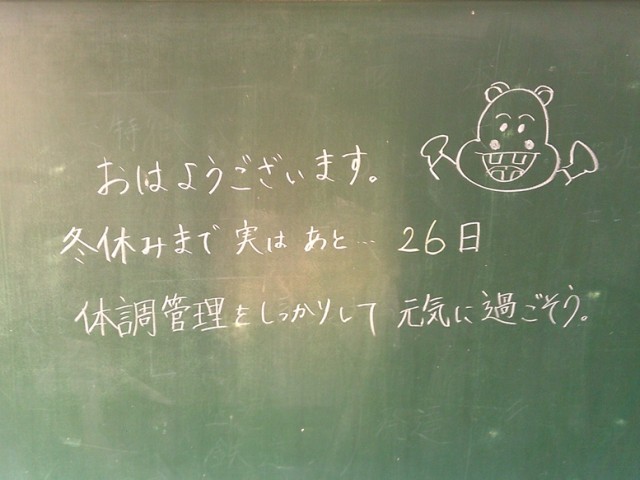 おはようございます。
冬休みまで 実は あと… 26日
体調管理をしっかりして 元気に過ごそう。